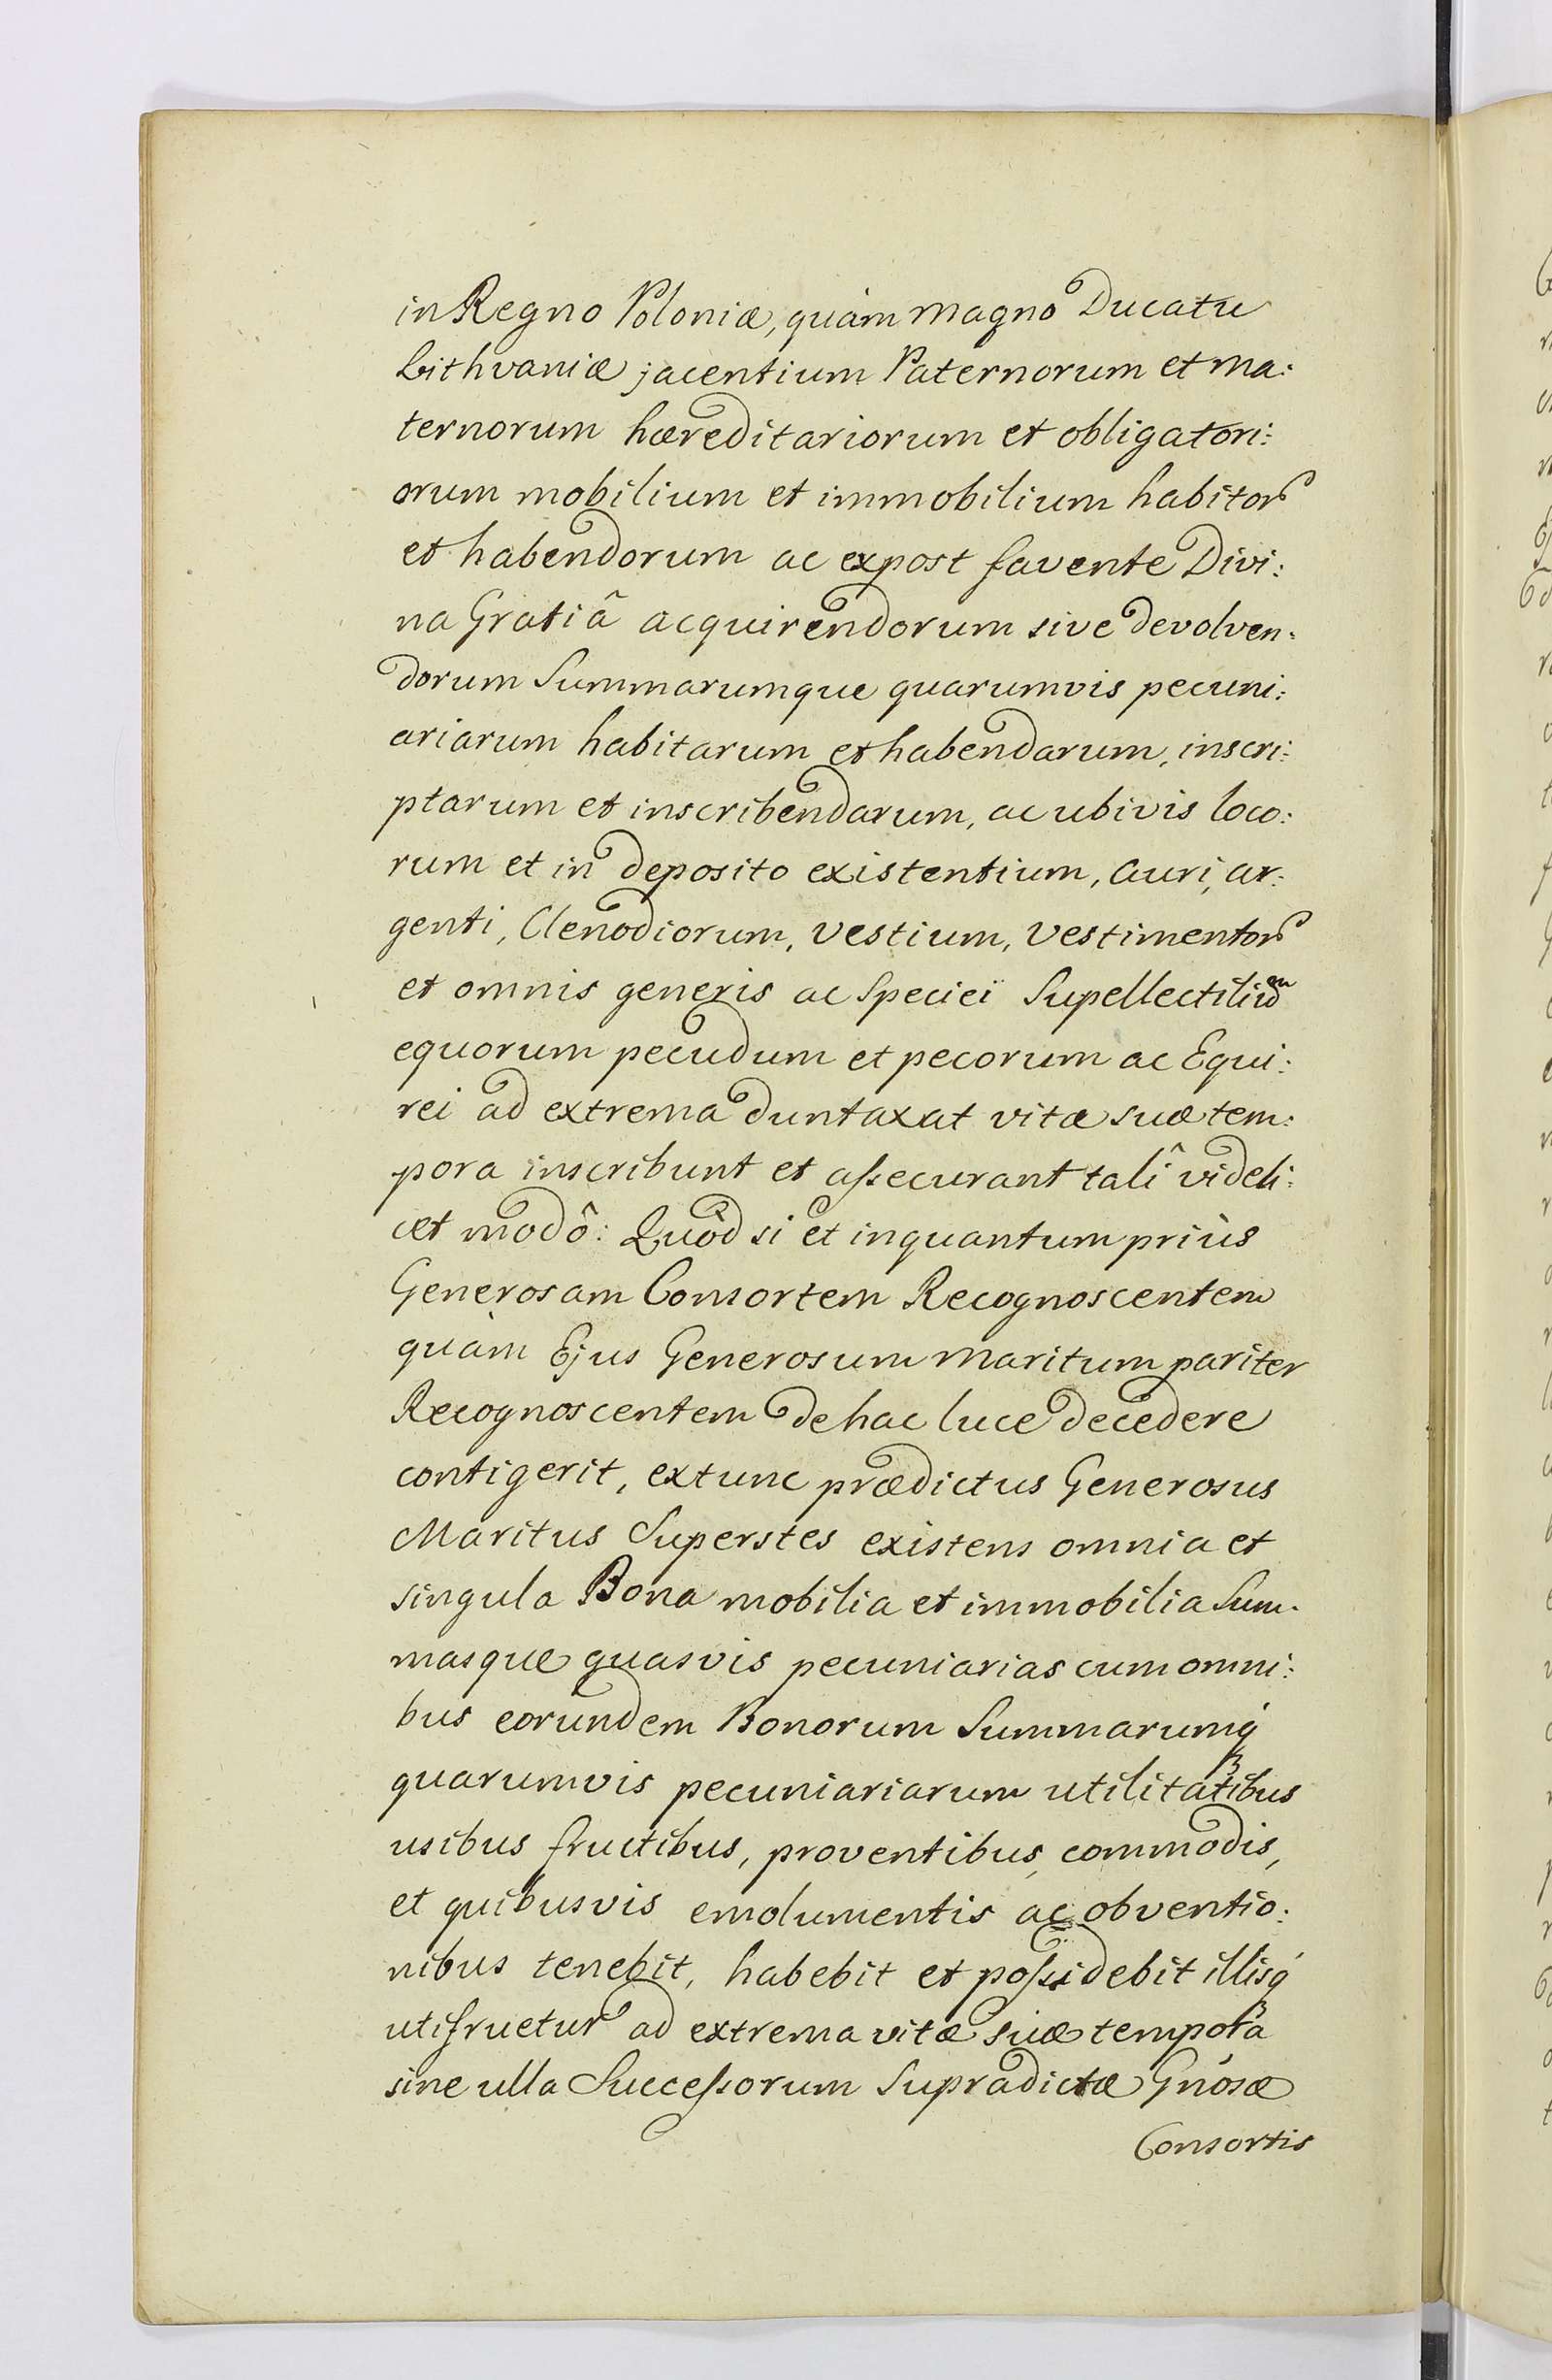 in Regno Poloniæ, quàm Magno Ducatu
Lithvaniæ jacentium Paternorum et Ma:
ternorum hæreditariorum et obligatori:
orum mobilium et immobilium habitor
et habendorum ac expost favente Divi:
na Gratiâ acquirendorum sive devolven:
dorum Summarumque quarumvis pecuni:
ariarum habitarum et habendarum, inscri:
ptarum et inscribendarum, ac ubivis loco:
rum et in deposito existentium, Auri, ar:
genti, Clenodiorum, Vestium, Vestimentor
et omnis generis ac Speciei Supellectiliu͞m
equorum pecudum et pecorum ac Equi:
rei ad extrema duntaxat vitæ suæ tem:
pora inscribunt et aſsecurant talî videli:
cet modô: Quòd si et inquantum priùs
Generosam Consortem Recognoscentem
quàm Ejus Generosum Maritum pariter
Recognoscentem de hac luce decedere
contigerit, extunc prædictus Generosus
Maritus Superstes existens omnia et
singula Bona mobilia et immobilia Sum:
masque quasvis pecuniarias cum omni:
bus eorundem Bonorum Summarumq́
quarumvis pecuniariarum utilitatibus
usibus fructibus, proventibus, commodis,
et quibusvis emolumentis ac obventio:
nibus tenebit, habebit et poſsidebit illisq́
utifruetur ad extrema vitæ suæ tempora
sine ulla Succeſsorum Supradictæ Gńosæ
Consortis